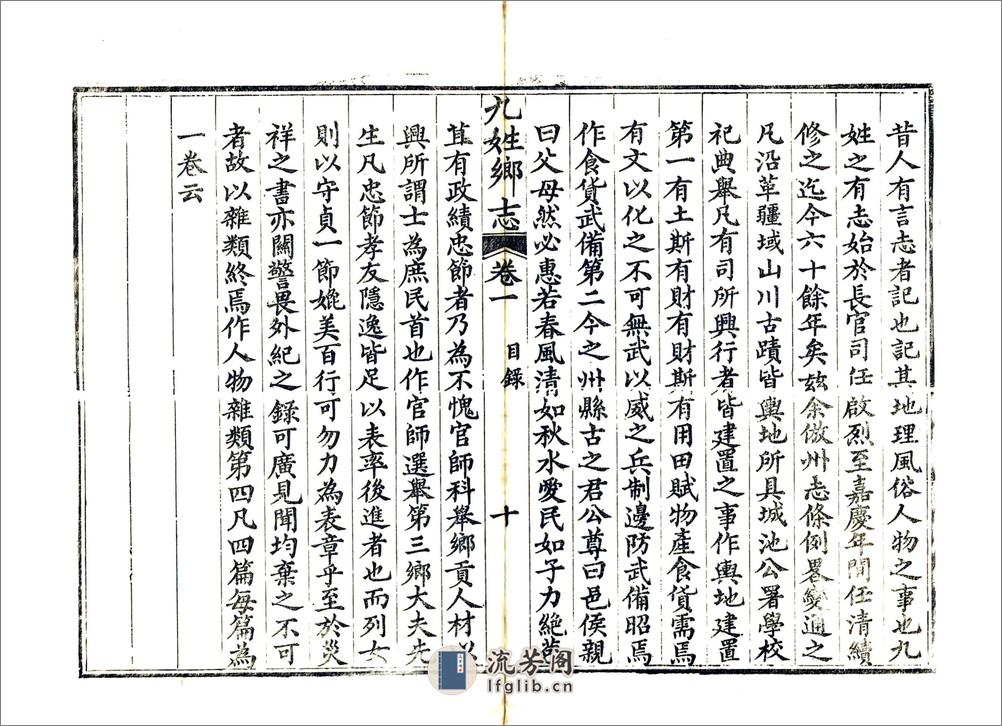 昔人有言志者記也記其地理風俗人物之事也九
姓之有志始於長官司任啟烈至嘉慶年間任清續
修之迄今六十餘年矣玆余倣州志條例畧變通之
凡沿革疆域山川古蹟皆輿地所具城池公署學校
祀典舉凡有司所興行者皆建置之事作輿地建置
第一有土斯有財有財斯有用田賦物產食貨需焉
有文以化之不可無武以威之兵制邊防武備昭焉
作食貨武備第二今之州縣古之君公尊曰邑侯親
曰父母然必惠若春風清如秋水愛民如子力絶苞
九姓鄉志 卷一 目錄 十
苴有政績忠節者乃為不愧官師科舉鄉貢人材
興所謂士為庶民首也作官師選舉第三鄉大夫夫
生凡忠節孝友隱逸皆足以表率後進者也而列女
則以守貞一節媲美百行可勿力為表章乎至於災
祥之書亦關警畏外紀之錄可廣見聞均棄之不可
者故以雜類終焉作人物雜類第四凡四篇每篇為
一卷云
流芳阁
lfglib.cn